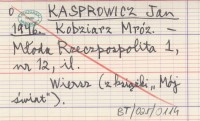 o KASPROWICZ Jan
1946. Kobziarz Mróz. -
Młoda Rzeczpospolita 1,
nr 12, il.
Wiersz (z książki „Mój
świat").
BT/021/0114